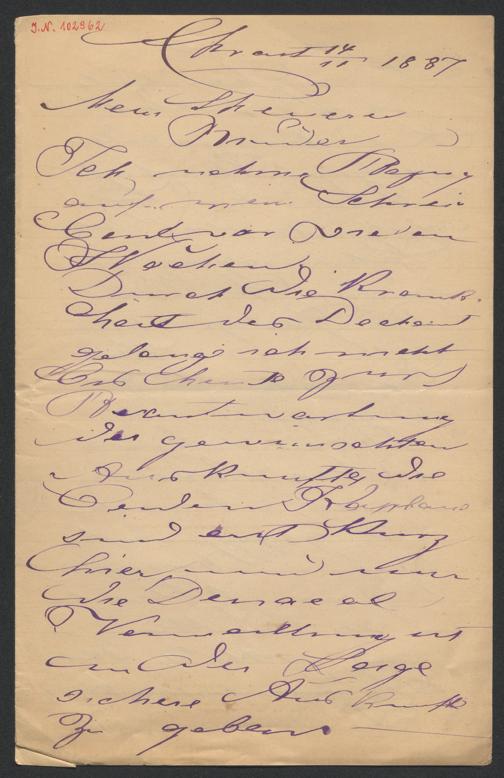 J.N. 102962
14/11 1887
Mein Theurer
Bruder
Ich nehme Bezug
auf mein Schrei
ben vor
Wochen.
Durch die Krank-
heit des Dechant
gelangt ich nicht
bis heute zur
Beantwortung
der gewünschten
Auskünfte, die
beiden Kapläne
sind erst kurz
hier und nur
die
Verwaltung ist
in der Lage
sichere Auskunft
zu geben.